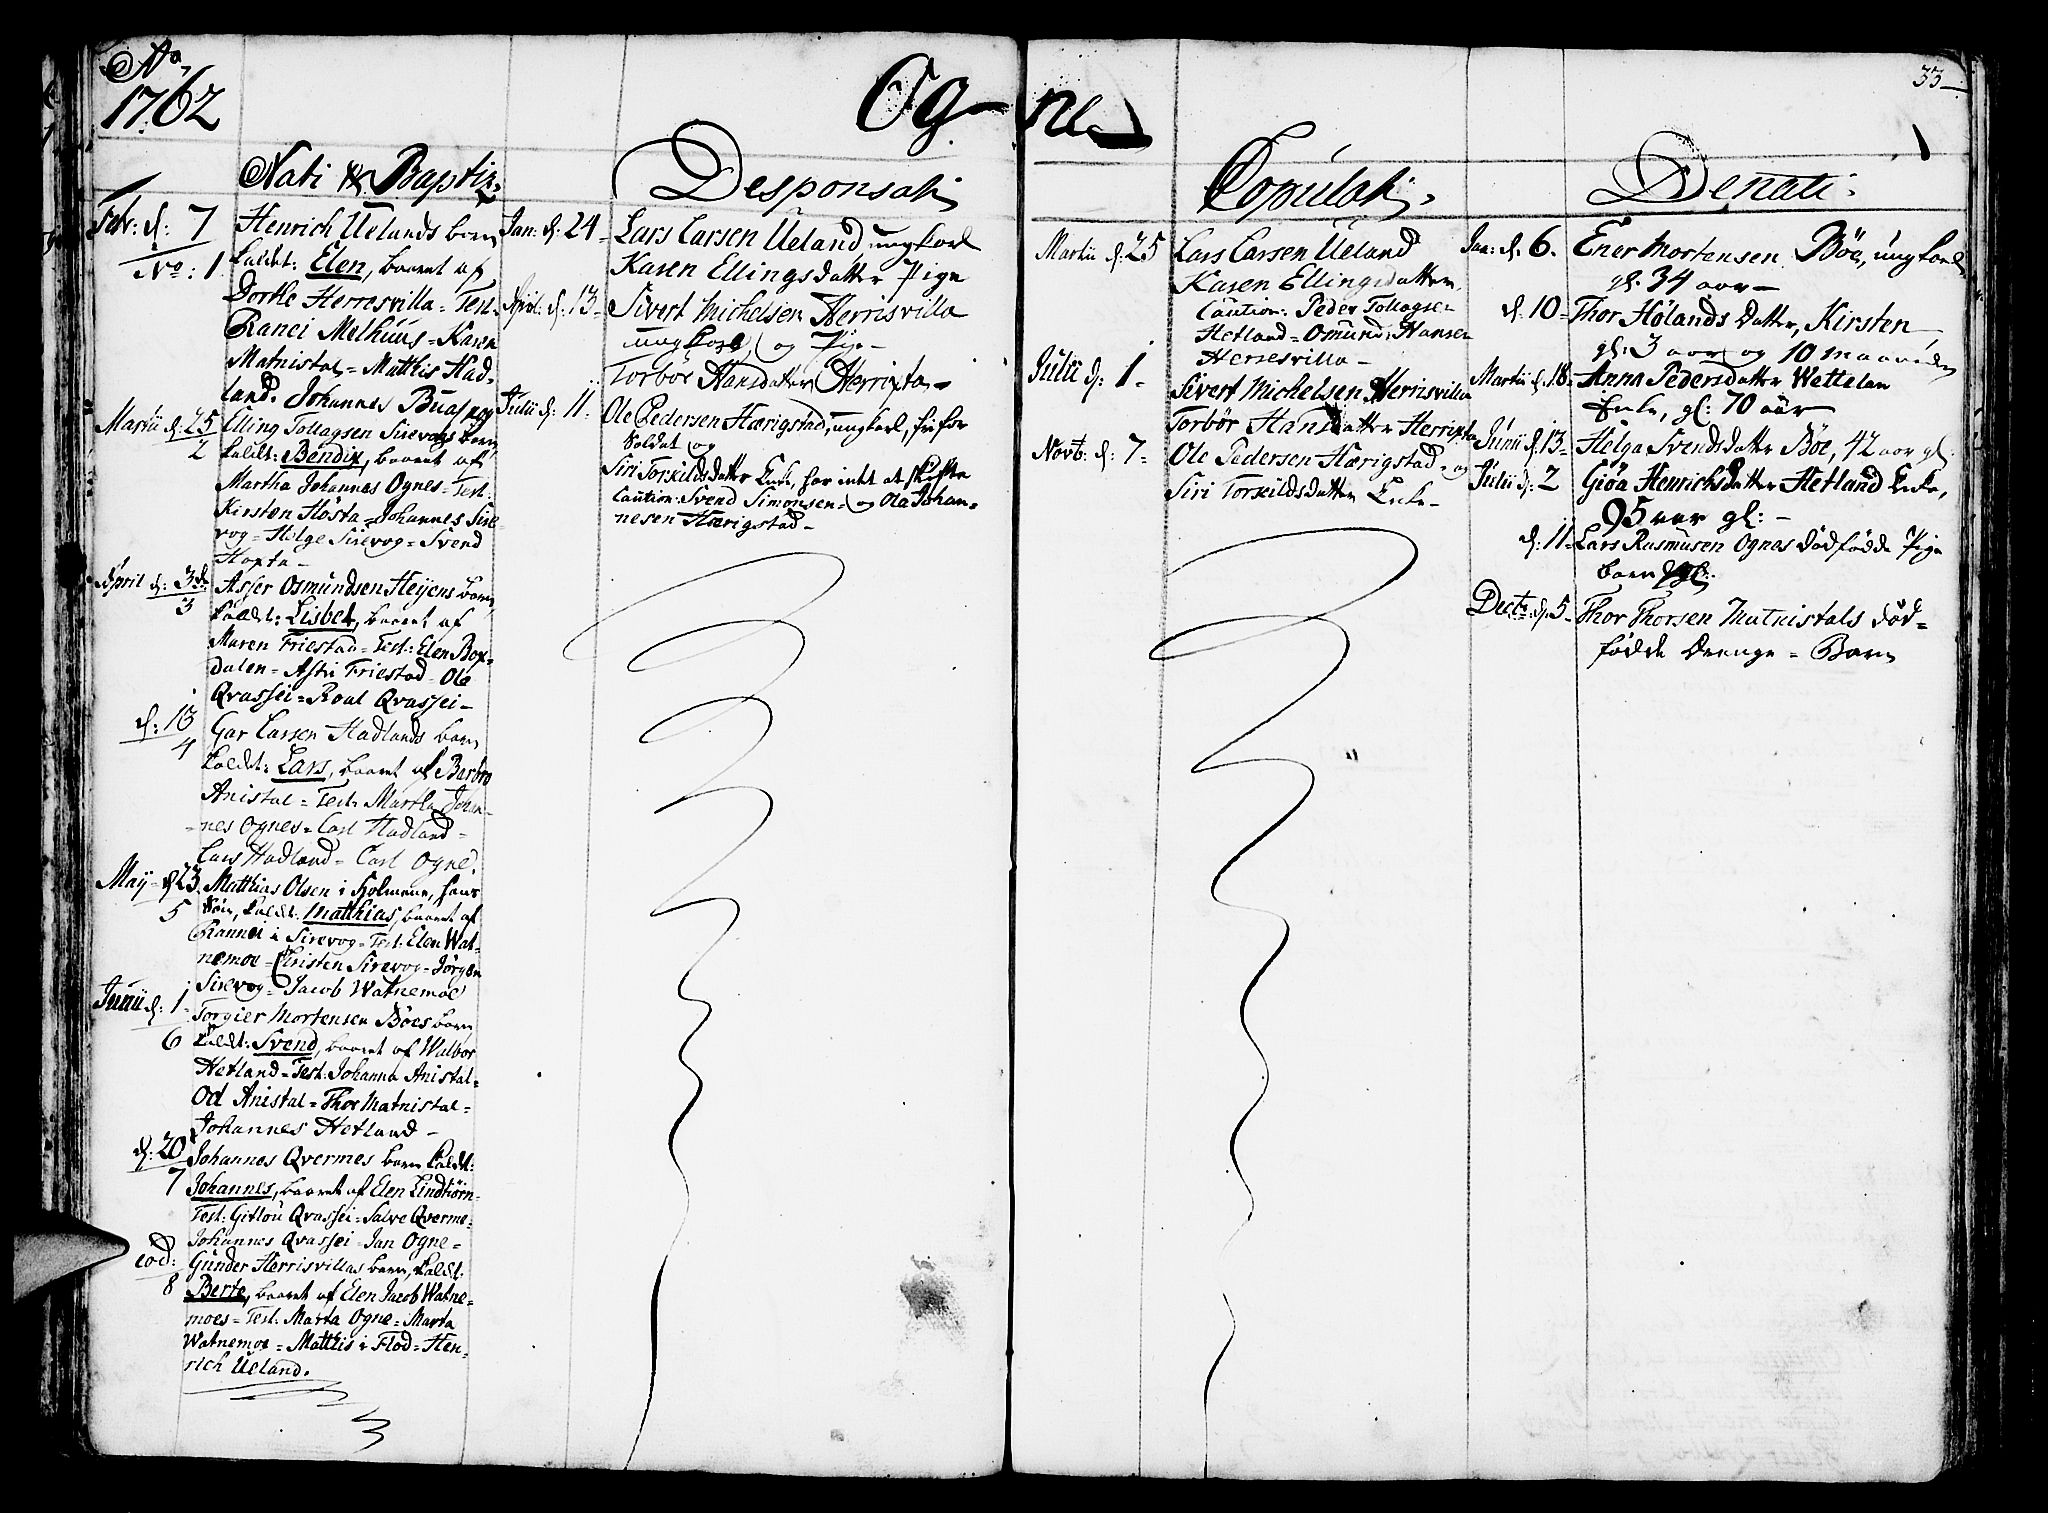 Ao
1762
Og-
ne
33
Nati & Baptiz.
Febr: d: 7
No: 1
Henrich Uelands barn
kaldt: Elen, baaret af
Dorthe Herresvilla = Test:
Ranei Melhuus = Karen
Matnistal = Matthis Had-
land. Johannes
Martii d: 25
2
Elling Tollagsen Sirevogs barn
kaldt: Bendix, baaret af
Martha Johannes Ognes = Test:
Kirsten Hosta = Johannes Sire-
vog = Helge Sirevog = Svend
Hopta -
April d: 3de
3
Asser Osmundsen Heyens barn
kaldt: Lisbet, baaret af
Maren Friestad = Test: Elen Box-
dalen = Astri Friestad = Ole
Qvassei = Roal Qvassei -
d: 13
4
Gar Larsen Hadlands barn
kaldt: Lars, baaret af Barbro
Anistal = Test: Martha Johan-
nes Ognes = Carl Hadland =
Lars Hadland = Carl Ogne.
May = d 23
5
Matthias Olsen i Holmene, hans
Søn, kaldt: Matthias, baaret af
Rannei i Sirevog = Test: Elen Wat-
nemoe = Christen Sirevog = Jørgen
Sirevog = Jacob Watnemoe
Junii d: 1
6
Torgier Mortensen Böes barn
kaldt: Svend, baaret af Walbor
Hetland = Test: Johanna Anistal =
Od Anistal = Thor Matnistal =
Johannes Hetland -
d: 20
7
Johannes Qvermes barn kaldt:
Johannes, baaret af Elen Lindtiörn -
Test: Gitlou Qvassei = Salve Qverme =
Johannes Qvassei = Jan Ogne =
eod:
8
Gunder Herrisvillas barn, kaldt:
Berte, baaret af Elen Jacob Watne-
moes = Test: Marta Ogne = Marta
Watnemoe = Matthis i Flod = Hen-
rich Ueland.
Desponsati
Jan: d: 24 -
Lars Larsen Ueland, ungkarl
Karen Ellingsdatter Pige
April: d: 13 -
Sivert Michelsen Herrisvilla
ungkarl og Pige -
Torbör Hansdatter Herrixta -
Julii d: 11 -
Ole Pedersen Hærigstad, ungkarl, frifor
Soldat og
Siri Torkildsdatter Enke, har intet at skifte
Caution: Svend Simonsen = og Ola Johan-
nesen Hærigstad -
Copulati.
Martii d: 25
Lars Larsen Ueland
Karen Ellingsdatter
Caution: Peder Tollagsen
Hetland = Osmund Hansen
Herresvilla -
Julii d: 1 -
Sivert Michelsen Herrisvilla
Torbör Hansdatter Herrixta
Novb: d: 7 -
Ole Pedersen Hærigstad = og
Siri Torkildsdatter Enke -
Denati.
Jan: d: 6.
Ener Mortensen Böe, ungkarl
gl: 34 aar -
d: 10 -
Thor Hölands Datter, Kirsten
gl: 3 aar og 10 maaneder
Martii d: 18 -
Anna Pedersdatter Wettelan
Enke, gl: 70 aar
Junii d. 13 -
Helga Svendsdatter Böe, 42 aar gl:
Julii d: 2
Giöa Henrichsdatter Hetland Enke,
95 aar gl: -
d: 11 -
Lars Rasmusen Ognes dödfödde Pige
barn
Decbr: d. 5 -
Thor Thorsen Matnistals död-
födde Drenge = Barn